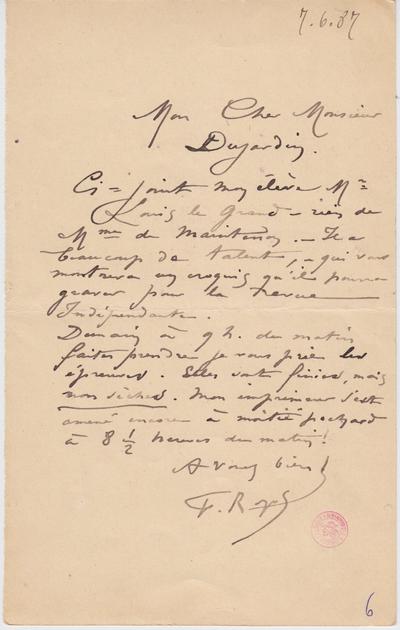 7.6.87
Mon Cher Monsieur
Dujardin.
Ci=joint mon élève Mr
Louis le Grand – rien de
Mme de Maintenon. – Il a
beaucoup de talent, – qui vous
montrera un croquis qu'il pourra
graver pour la revue
Indépendante.
Demain à 9 h. du matin
faites prendre je vous prie les
épreuves. Elles sont finies, mais
non sèches. Mon imprimeur s'est
amené encore à moitié pochard
à 8 ½ heures du matin!
A vous bien!
F. Rops
6